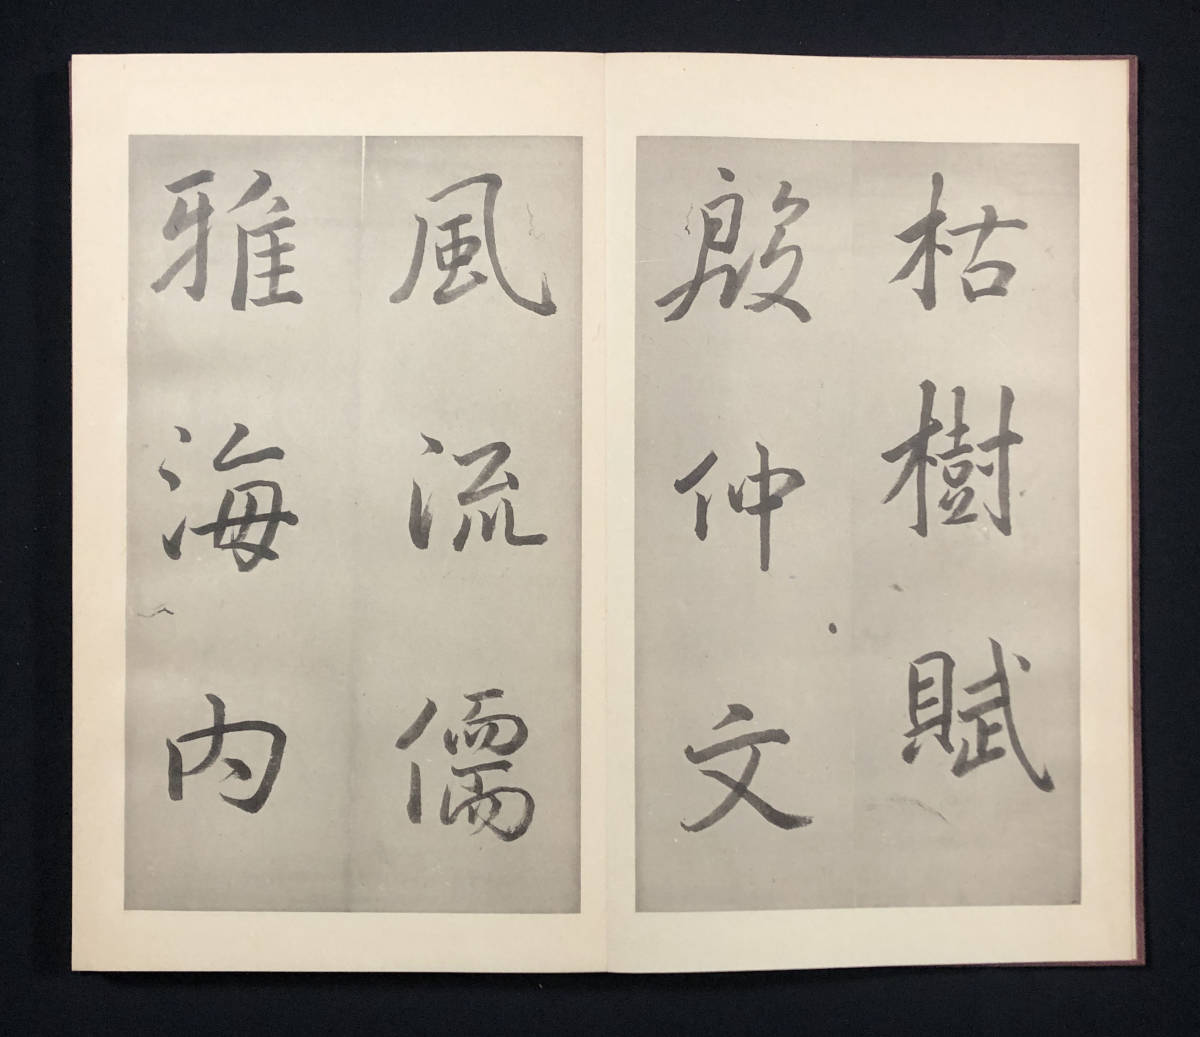 枯樹賦
殷仲文
風流儒
雅海内